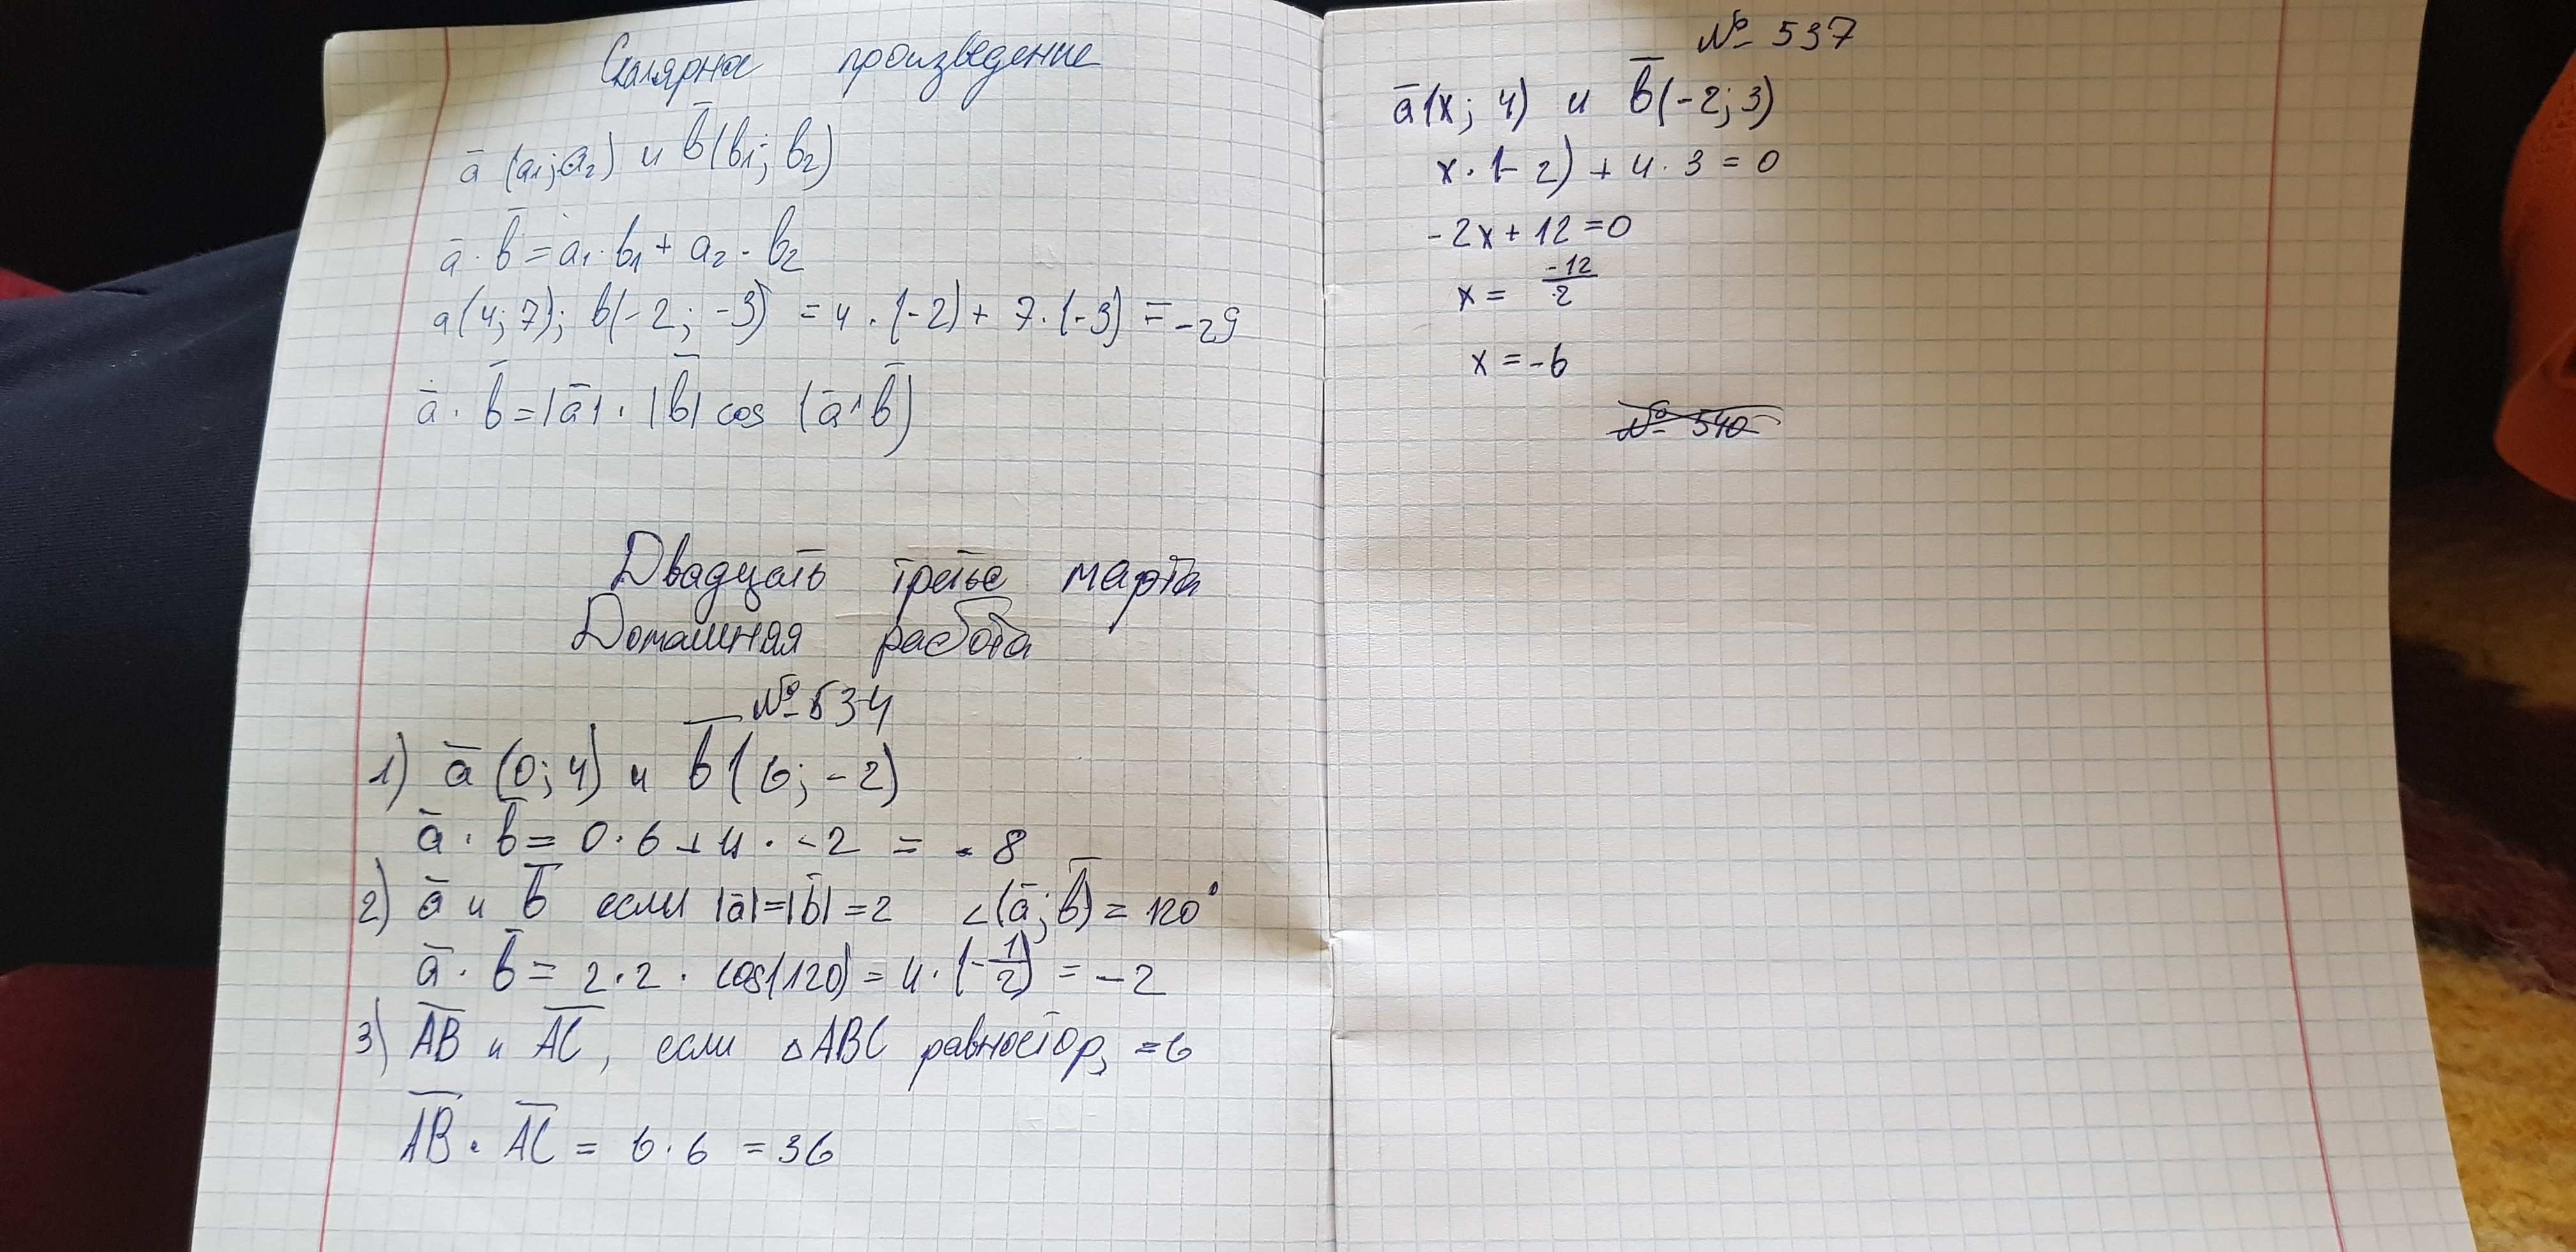 Скалярное произведение
ā (a₁; a₂) и b̄(b₁; b₂)
ā · b̄ = a₁ · b₁ + a₂ · b₂
a(4; 7); b(-2; -3) = 4 · (-2) + 7 · (-3) = -29
ā · b̄ = |ā| · |b̄| cos (ā ^ b̄)
Двадцать третье марта
Домашняя работа
№ 534
1) ā (0; 4) и b̄ (6; -2)
ā · b̄ = 0 · 6 + 4 · -2 = -8
2) ā и b̄ если |ā| = |b̄| = 2 ∠(ā; b̄) = 120°
ā · b̄ = 2 · 2 · cos(120) = 4 · (-1/2) = -2
3) A̅B̅ и A̅C̅, если △ABC равностор, = 6
A̅B̅ · A̅C̅ = 6 · 6 = 36
№ 537
ā(x; 4) и b̄(-2; 3)
x · (-2) + 4 · 3 = 0
-2x + 12 = 0
x = -12/2
x = -6
№ 540